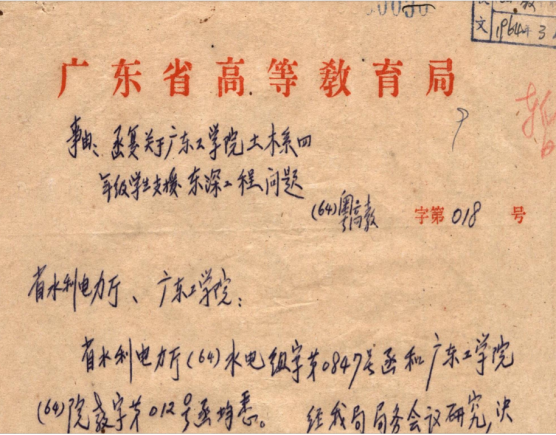 文 1964年3月
广东省高等教育局
事由：函复关于广东工学院土木系四
年级学生支援东深工程问题
(64)粤高教 字第 018 号
省水利电力厅、广东工学院：
省水利电力厅(64)水电组字第0847号函和广东工学院
(64)院教字第012号函均悉。 经我局局务会议研究，决